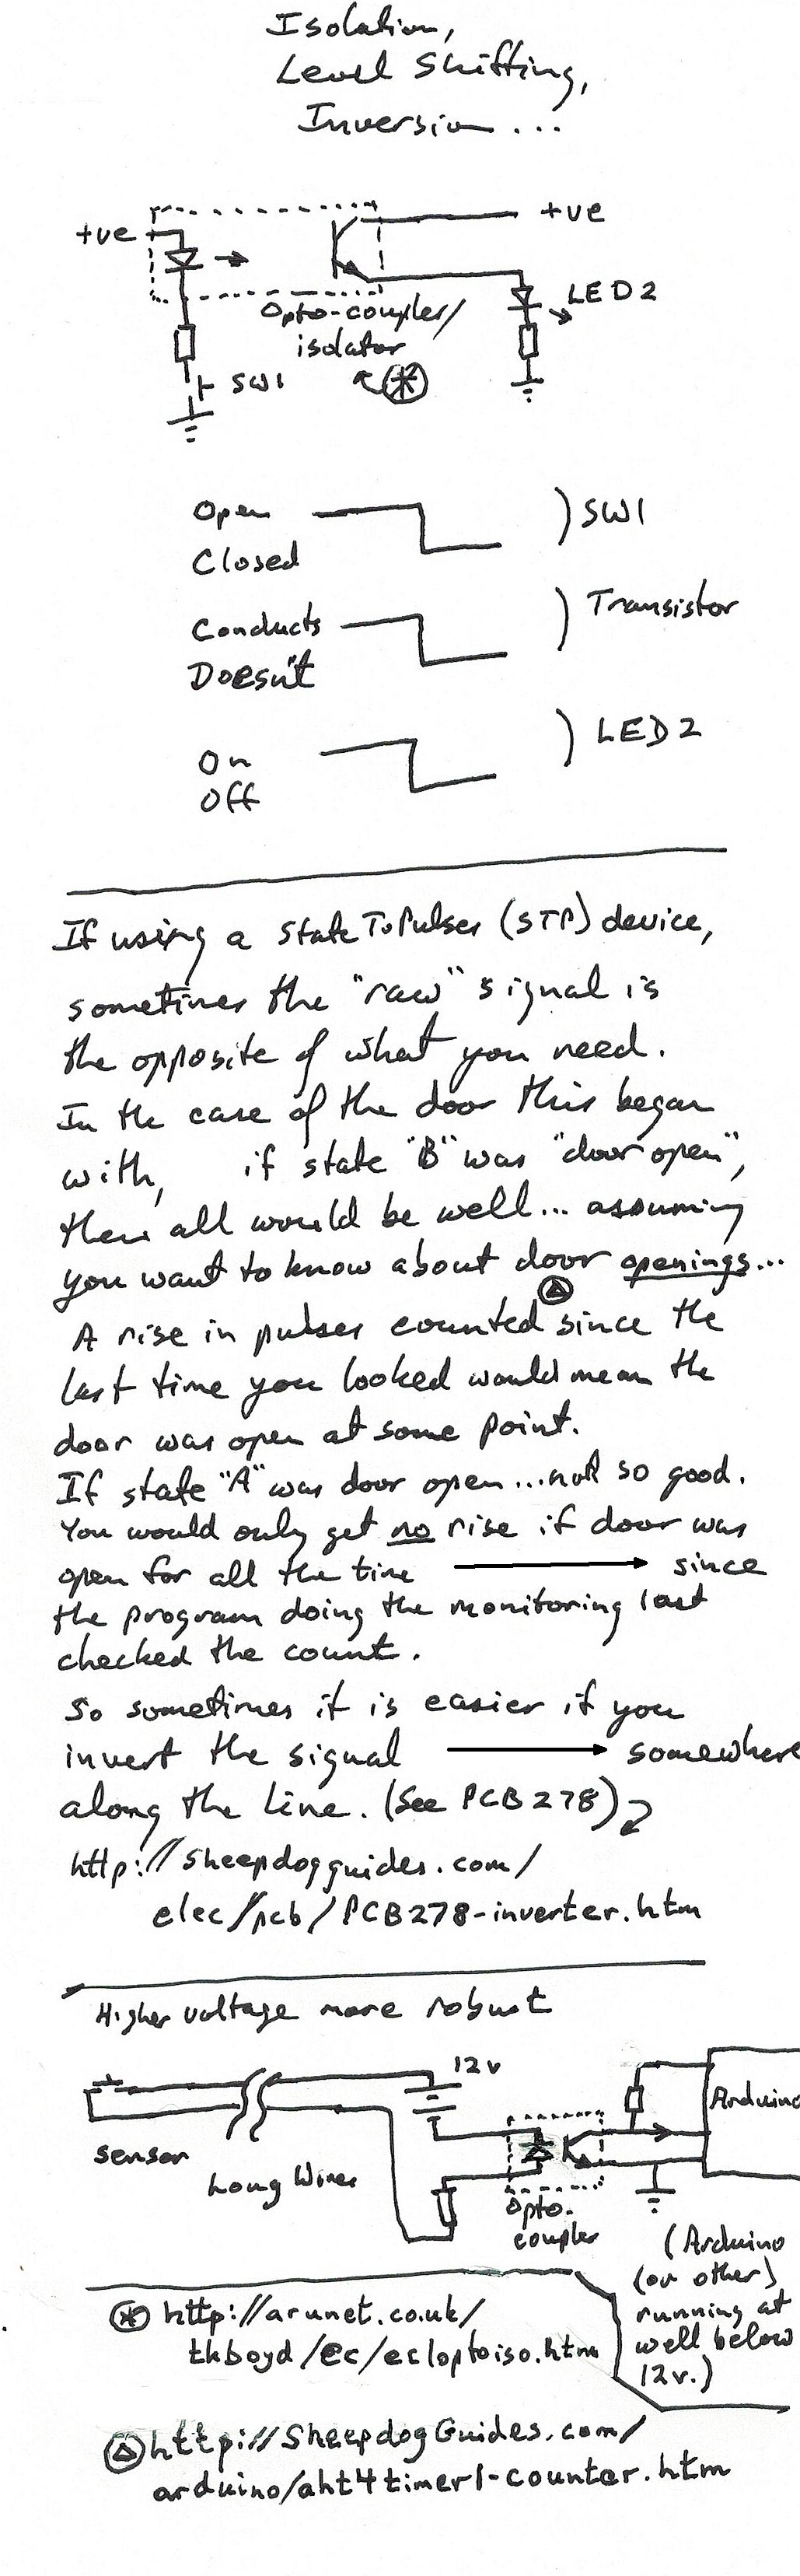 Isolation,
Level Shifting,
Inversion...
+ve
+ve
LED2
Opto-coupler/
isolator
SW1
Open
Closed
) SW1
Conducts
Doesn't
) Transistor
On
Off
) LED2
If using a StateToPulses (STP) device,
sometimes the "raw" signal is
the opposite of what you need.
In the case of the door this began
with, if state "B" was "door open",
then all would be well... assuming
you want to know about door openings...
A rise in pulses counted since the
last time you looked would mean the
door was open at some point.
If state "A" was door open...not so good.
You would only get no rise if door was
open for all the time → since
the program doing the monitoring last
checked the count.
So sometimes it is easier if you
invert the signal → somewhere
along the line. (See PCB278)
http://sheepdogguides.com/
elec/pcb/PCB278-inverter.htm
Higher voltage more robust
12v
Arduino
sensor
Long Wires
Opto-
coupler
(Arduino
(or other)
running at
well below
12v.)
http://arunet.co.uk/
tkboyd/ec/ec1optoiso.htm
http://SheepdogGuides.com/
arduino/aht4timer1-counter.htm